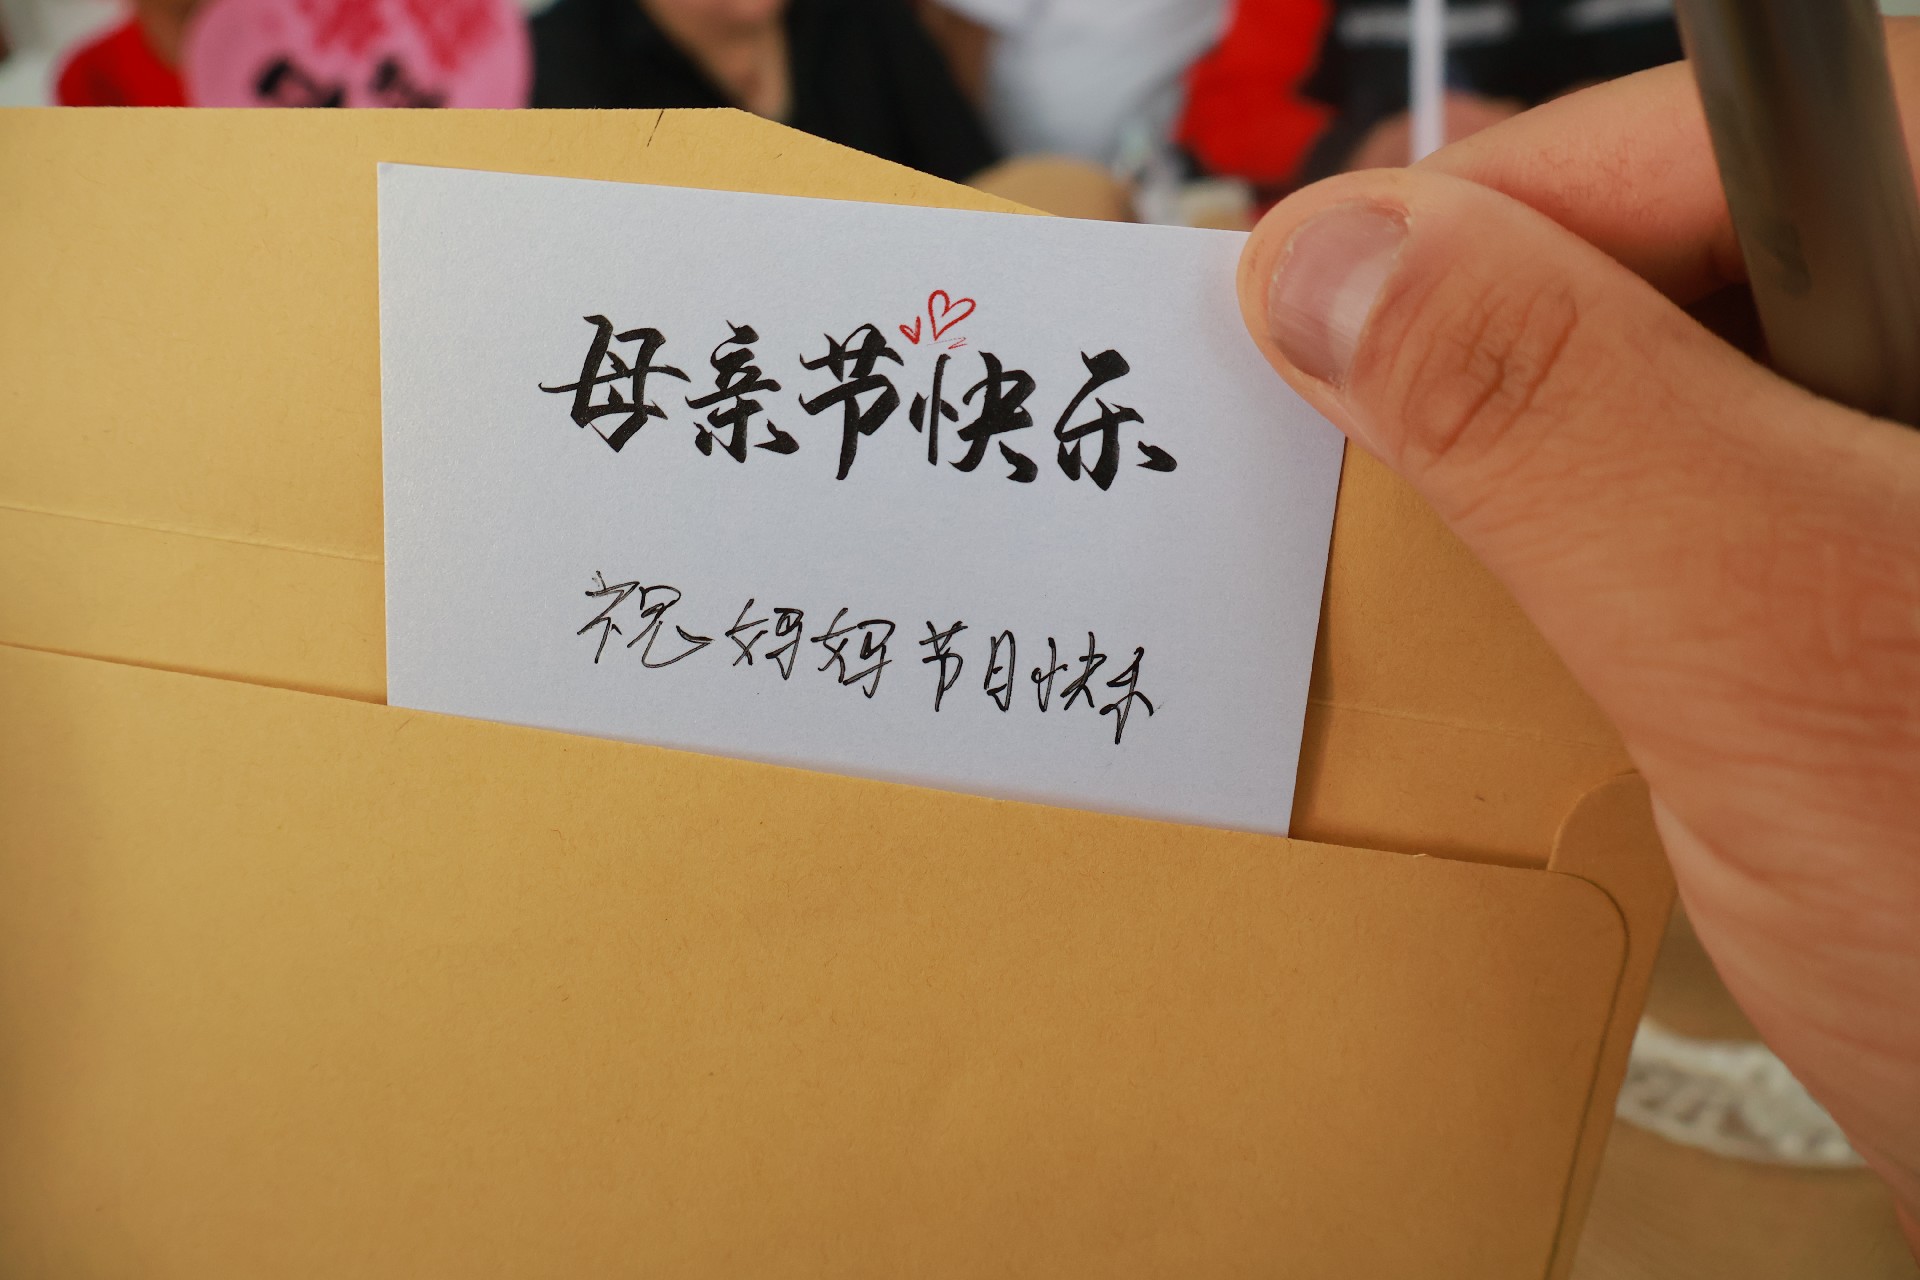 母亲节快乐
祝妈妈节日快乐